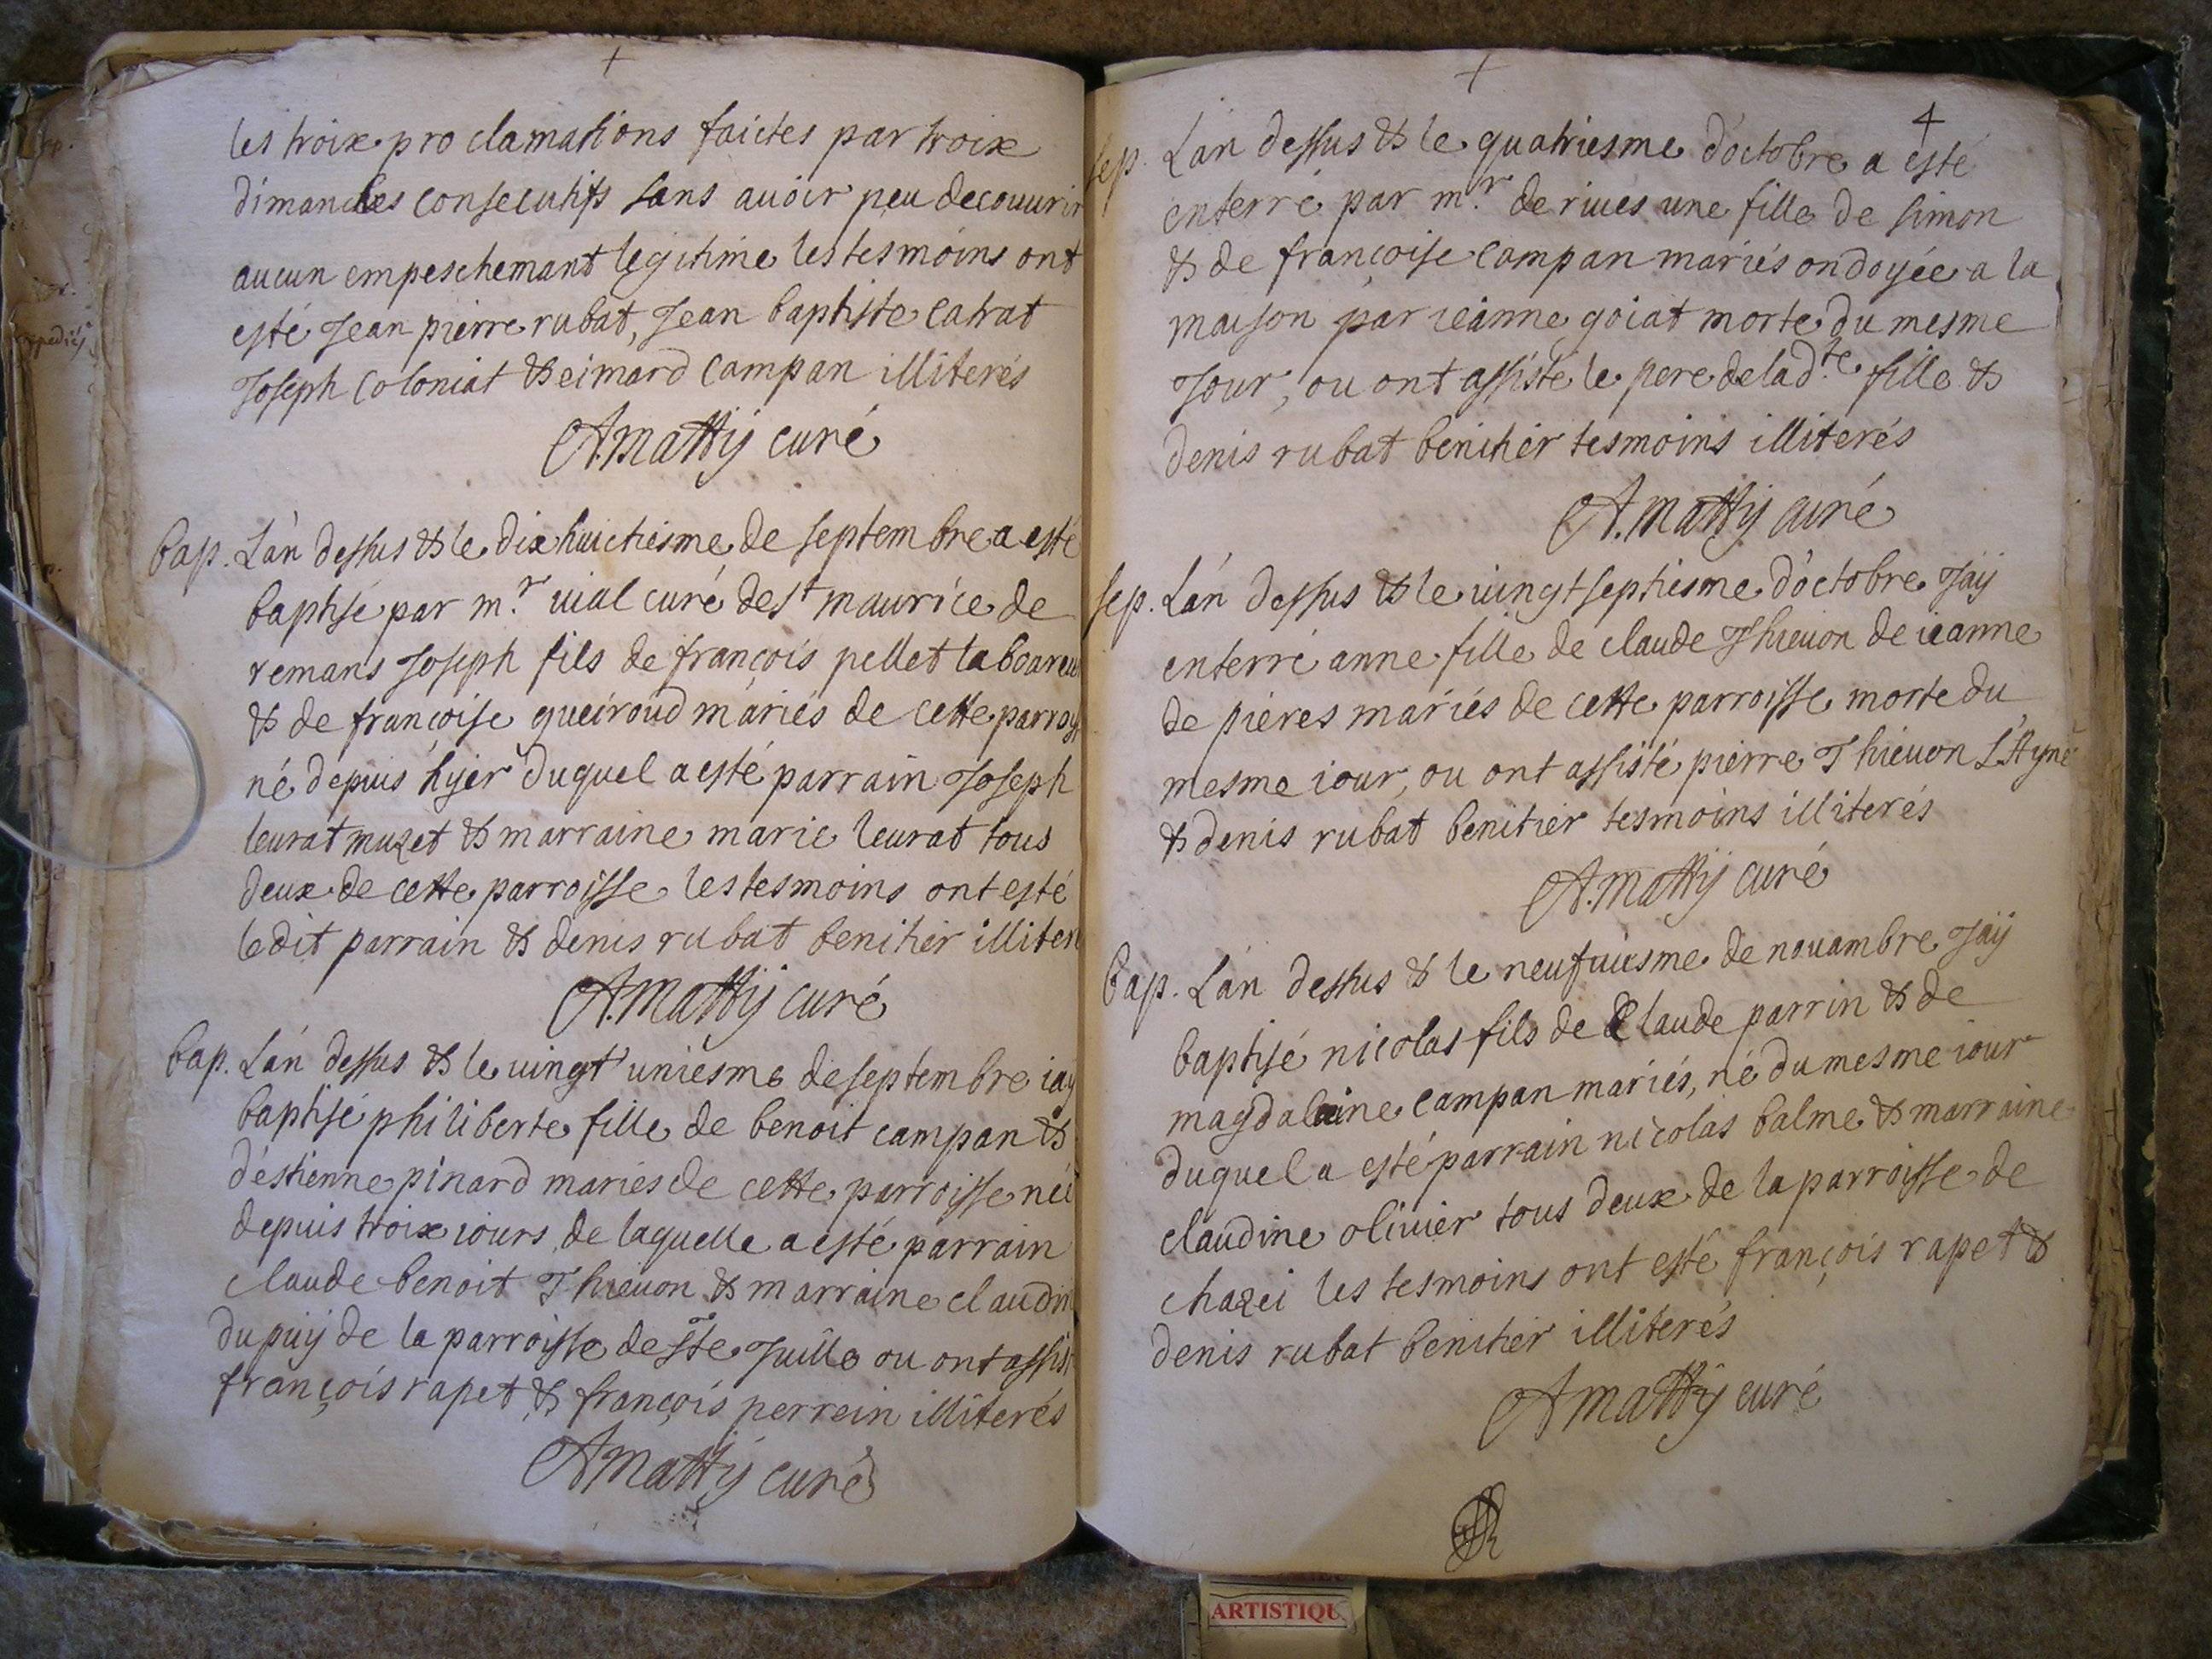 les troix proclamations faictes par troix
dimanches consecutifs sans auoir peu decouurir
aucun empeschemant legitime les tesmoins ont
esté Jean pierre rubat, Jean baptiste catrat
Joseph coloniat & eimard campan illiterés
A. Mattij curé
bap. L'an dessus & le dixhuictiesme de septembre a esté
baptisé par m.r uial curé de st maurice de
remans Joseph fils de françois pellet laboureur
& de françoise queiroud mariés de cette parroisse
né depuis hyer duquel a esté parrain Joseph
leurat muzet & marraine marie leurat tous
deux de cette parroisse les tesmoins ont esté
ledit parrain & denis rubat benitier illiter
A. Mattij curé
bap. L'an dessus & le uingt uniesme de septembre iay
baptisé philiberte fille de benoit campan &
d'estienne pinard mariés de cette parroisse née
depuis troix iours, de laquelle a esté parrain
claude benoit Thieuon & marraine claudin
du puij de la parroisse de ste Juille ou ont assis
françois rapet & françois perrein illiterés
A Mattij curé
4
sep. L'an dessus & le quatriesme d'octobre a esté
enterré par m.r de riues une fille de simon
& de françoise campan mariés ondoyée a la
maison par ieanne goiat morte du mesme
Jour, ou ont assisté le pere de lad.te fille &
denis rubat benitier tesmoins illiterés
A. Mattij curé
sep. L'an dessus & le uingt septiesme d'octobre Jaij
enterré anne fille de claude Thieuon de ieanne
de pieres mariés de cette parroisse morte du
mesme iour, ou ont assisté pierre Thieuon L'Ayné
& denis rubat benitier tesmoins illiterés
A. Mattij curé
bap. L'an dessus & le neufuiesme de nouambre Jaij
baptisé nicolas fils de Claude parrin & de
magdalaine campan mariés, né du mesme iour
duquel a esté parrain nicolas balme & marraine
claudine oliuier tous deux de la parroisse de
chazei les tesmoins ont esté françois rapet &
denis rubat benitier illiterés
A Mattij curé
ARTISTIQU